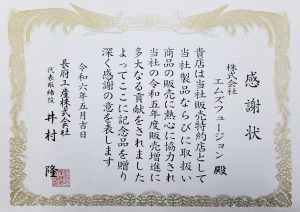 感謝状
株式会社
エムズフュージョン 殿
貴店は当社販売特約店として
当社製品ならびに取扱い
商品の販売に熱心に協力され
当社の令和五年度販売増進に
多大なる貢献をされました
よってここに記念品を贈り
深く感謝の意を表します
令和六年五月吉日
長府工産株式会社
代表取締役 井村 隆